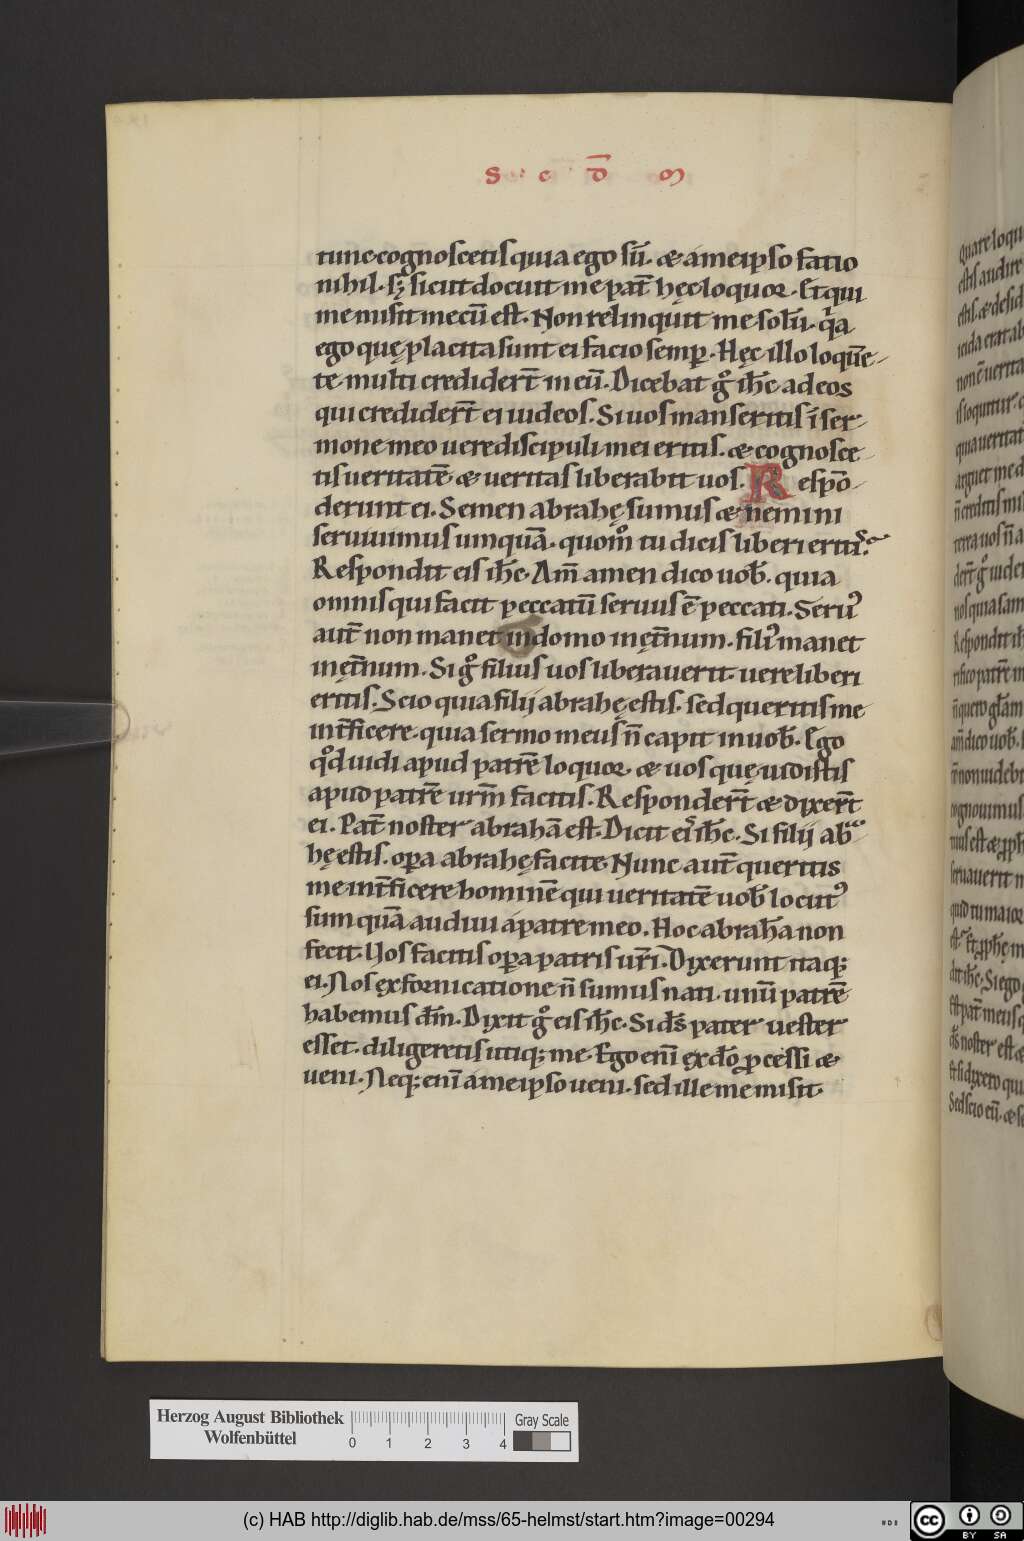 S · e · D̅ · ꝏ
tunc cognoscetis quia ego sū. & ameipso facio
nihil. sꝫ sicut docuit me pat̄ hęc loquor. Et qui
me misit mecū est. Non relinquit me solū. qa
ego quę placita sunt ei facio semꝑ. Hęc illo loquē-
te multi credidert̄ in eū. Dicebat g° ih̄c ad eos
qui credidert̄ ei iudeos. Si uos manseritis ī ser-
mone meo uere discipuli mei eritis. & cognosce-
tis ueritatē & ueritas liberabit uos. Respō-
derunt ei. Semen abrahę sumus & nemini
seruiuimus umquā. quom° tu dicis liberi eritis?
Respondit eis ih̄c. Am̄ amen dico uob̄. quia
omnis qui facit peccatū seruus ē peccati. Seruꝰ
aut̄ non manet in domo in ęt̄num. filiꝰ manet
in ęt̄num. Si g° filius uos liberauerit. uere liberi
eritis. Scio quia filii abrahę estis. sed queritis me
int̄ficere. quia sermo meus n̄ capit in uob̄. Ego
qd̄ uidi apud patrē loquor. & uos quę uidistis
apud patrē urm̄ facitis. Respondert̄ & dixert̄
ei. Pat̄ noster abrahā est. Dicit eis ih̄c. Si filii abra
hę estis. oꝑa abrahę facite. Nunc aut̄ queritis
me int̄ficere hominē qui ueritatē uob̄ locutꝰ
sum quā audiui a patre meo. Hoc abrahā non
fecit. Uos facitis oꝑa patris ur̄i. Dixerunt itaqꝫ
ei. Nos ęx fornicatione n̄ sumus nati. unū patrē
habemus dm̄. Dixit g° eis ih̄c. Si ds̄ pater uester
esset. diligeretis utiqꝫ me. Ego enī ęx dō ꝓcessi &
ueni. Neqꝫ enī a meipso ueni. sed ille me misit.
Herzog August Bibliothek
Wolfenbüttel
0 1 2 3 4
Gray Scale
(c) HAB http://diglib.hab.de/mss/65-helmst/start.htm?image=00294
cc BY SA